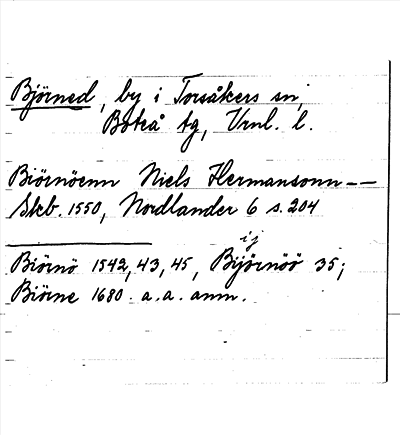 Björned, by i Torsåkers sn,
Boteå tg, Vrnl. l.
Biörnöenn Niels Hermansonn --
Skb. 1550, Nordlander 6 s. 204
ij
Biörnö 1542, 43, 45, Bijörnöö 35;
Biörne 1680. a. a. anm.